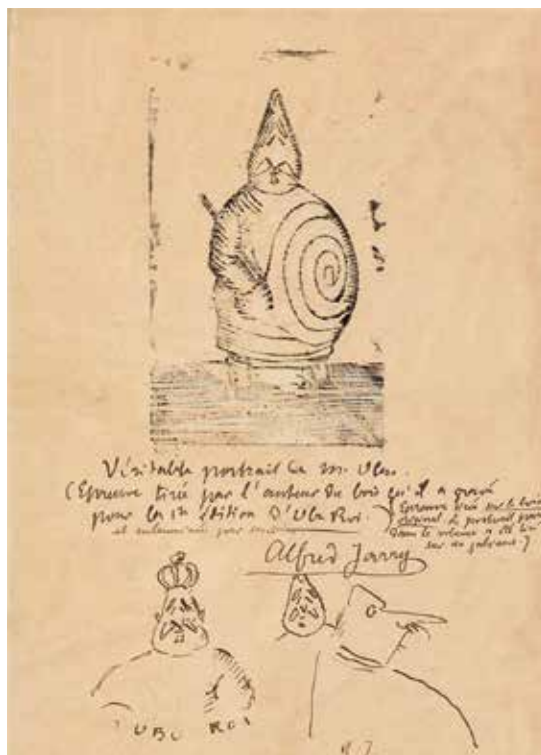 Véritable portrait de Mr Ubu.
(Epreuve tirée par l'auteur du bois qu'il a gravé
pour la 1re édition d'Ubu Roi.)
(Epreuve tirée sur le bois
original. Le portrait paru
dans le volume a été
sur un
Alfred Jarry
UBU ROI
A. J.